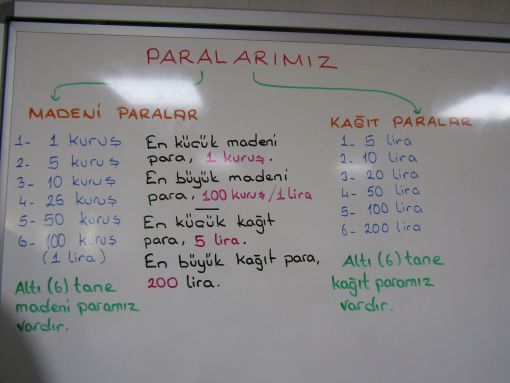 PARALARIMIZ
MADENİ PARALAR
1- 1 kuruş
2- 5 kuruş
3- 10 kuruş
4- 25 kuruş
5- 50 kuruş
6- 100 kuruş
(1 lira)
Altı (6) tane
madeni paramız
vardır.
En küçük madeni
para, 1 kuruş.
En büyük madeni
para, 100 kuruş/1 lira
En küçük kağıt
para, 5 lira.
En büyük kağıt para,
200 lira.
KAĞIT PARALAR
1- 5 lira
2- 10 lira
3- 20 lira
4- 50 lira
5- 100 lira
6- 200 lira
Altı (6) tane
kağıt paramız
vardır.